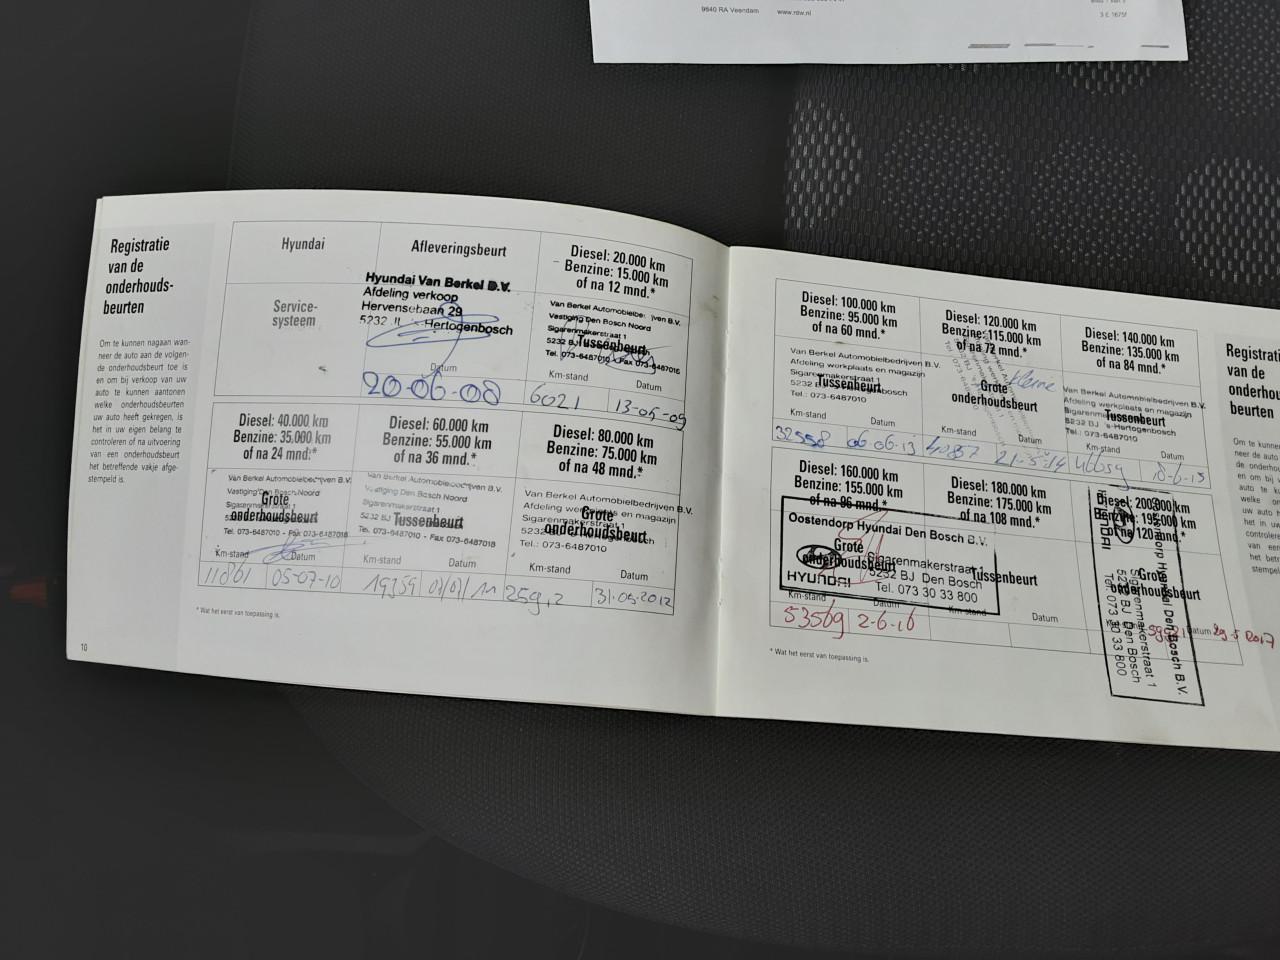 9640 RA Veendam www.rdw.nl
3 E 1675f
Registratie
van de
onderhouds-
beurten
Om te kunnen nagaan wan-
neer de auto aan de volgen-
de onderhoudsbeurt toe is
en om bij verkoop van uw
auto te kunnen aantonen
welke onderhoudsbeurten
uw auto heeft gekregen, is
het in uw eigen belang te
controleren of na uitvoering
van een onderhoudsbeurt
het betreffende vakje afge-
stempeld is.
Hyundai
Service-
systeem
Afleveringsbeurt
Hyundai Van Berkel B.V.
Afdeling verkoop
Hervensebaan 29
5232 's-Hertogenbosch
Datum
20-06-08
Diesel: 20.000 km
Benzine: 15.000 km
of na 12 mnd.*
Van Berkel Automobielbedrijven B.V.
Vestiging Den Bosch Noord
Sigarenmakerstraat 1
5232 BJ
Tussenbeurt
Tel. 073-6487010 - Fax 073-6487018
Km-stand Datum
6021 13-05-09
Diesel: 40.000 km
Benzine: 35.000 km
of na 24 mnd.*
Van Berkel Automobielbedrijven B.V.
Vestiging Den Bosch Noord
Sigarenmakerstraat 1
Grote
onderhoudsbeurt
Tel. 073-6487010 - Fax 073-6487018
Km-stand Datum
11861 05-07-10
Diesel: 60.000 km
Benzine: 55.000 km
of na 36 mnd.*
Van Berkel Automobielbedrijven B.V.
Vestiging Den Bosch Noord
Sigarenmakerstraat 1
5232 BJ
Tussenbeurt
Tel. 073-6487010 - Fax 073-6487018
Km-stand Datum
11
Diesel: 80.000 km
Benzine: 75.000 km
of na 48 mnd.*
Van Berkel Automobielbedrijven B.V.
Afdeling werkplaats en magazijn
Sigarenmakerstraat 1
Grote
onderhoudsbeurt
Tel.: 073-6487010
Km-stand Datum
31-05-2012
* Wat het eerst van toepassing is.
10
Diesel: 100.000 km
Benzine: 95.000 km
of na 60 mnd.*
Van Berkel Automobielbedrijven B.V.
Afdeling werkplaats en magazijn
Sigarenmakerstraat 1
Tussenbeurt
Tel.: 073-6487010
Km-stand Datum
32558 06-06-13
Diesel: 120.000 km
Benzine: 115.000 km
of na 72 mnd.*
kleine
Grote
onderhoudsbeurt
Km-stand Datum
40857 21-5-14
Diesel: 140.000 km
Benzine: 135.000 km
of na 84 mnd.*
Van Berkel Automobielbedrijven B.V.
Afdeling werkplaats en magazijn
Sigarenmakerstraat 1
Tussenbeurt
5232 BJ 's-Hertogenbosch
Tel.: 073-6487010
Km-stand Datum
8-6-15
Diesel: 160.000 km
Benzine: 155.000 km
of na 96 mnd.*
Oostendorp Hyundai Den Bosch B.V.
Grote
onderhoudsbeurt
Sigarenmakerstraat 1
5232 BJ Den Bosch
HYUNDAI
Tel. 073 30 33 800
Km-stand Datum
53569 2-6-16
Diesel: 180.000 km
Benzine: 175.000 km
of na 108 mnd.*
Tussenbeurt
Km-stand Datum
Diesel: 200.000 km
Benzine: 195.000 km
of na 120 mnd.*
Oostendorp Hyundai Den Bosch B.V.
Sigarenmakerstraat 1
5232 BJ Den Bosch
Tel. 073 30 33 800
HYUNDAI
Grote
onderhoudsbeurt
Datum
29-5-2017
* Wat het eerst van toepassing is.
van de
beurten